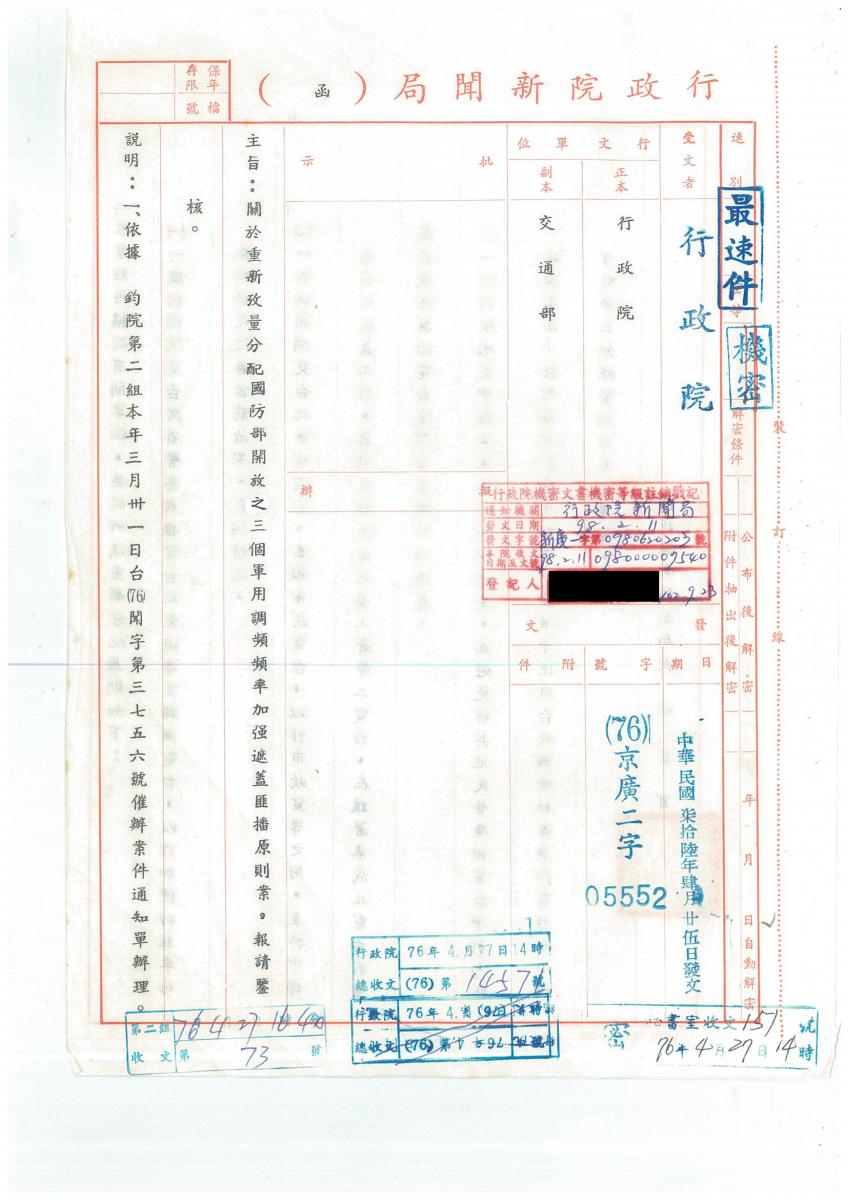 行政院新聞局（函）
保存年限
檔號
速別
最速件
密等
機密
解密條件
公布後解密
附件抽出後解密
年月日自動解密
裝訂線
受文者
行政院
行文單位
正本
行政院
副本
交通部
發文
日期
中華民國柒拾陸年肆月廿伍日發文
字號
(76)京廣二字
05552
附件
行政院機密文書機密等級註銷戳記
通知機關
行政院新聞局
發文日期
98.2.11
發文字號
新廣一字第0980620203號
本院收文日期及文號
98.2.11
098000009540
登記人
102.9.23
批示
擬辦
主旨：關於重新攷量分配國防部開放之三個軍用調頻頻率加强遮蓋匪播原則案，報請鑒
核。
說明：一、依據　鈞院第二組本年三月卅一日台(76)聞字第三七五六號催辦案件通知單辦理。
行政院
76年4月27日14時
總收文
(76)第14571號
行政院
76年4
總收文
(76)第
第二組
76 4 27 16
收文
第73號
密
秘書室收文151
76年4月27日14時